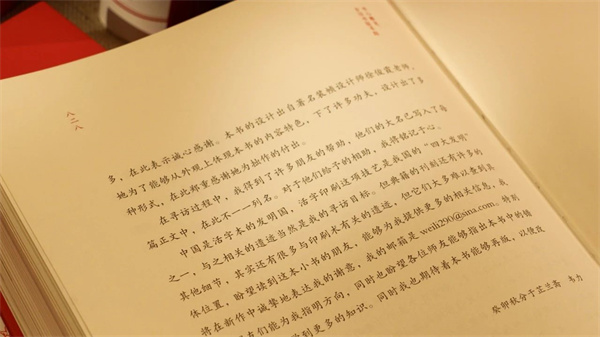 八二八
多，在此表示诚心感谢。本书的设计出自著名装帧设计师徐俊霞老师，
她为了能够从外观上体现本书的内容特色，下了许多功夫，设计出了多
种形式，在此郑重感谢她为拙作的付出。
在寻访过程中，我得到了许多朋友的帮助，他们的大名已写入了每
篇正文中，在此不一一列名。对于他们给予的相助，我将铭记于心。
中国是活字本的发明国，活字印刷这项技艺是我国的“四大发明”
之一，与之相关的遗迹当然是我的寻访目标。但典籍的刊刻还有许多的
其他细节，其实还有很多与印刷术有关的遗迹，但它们大多难以查到其
体位置，盼望读到这本小书的朋友，能够为我提供更多的相关信息，我
将在新作中诚挚地表达我的谢意，我的邮箱是weili290@sina.com。特别
友们能为我指明方向，同时也盼望各位师友能够指出本书中的错
到更多的知识。同时我也期待着本书能够再版，以便我
癸卯秋分于芷兰斋 韦力